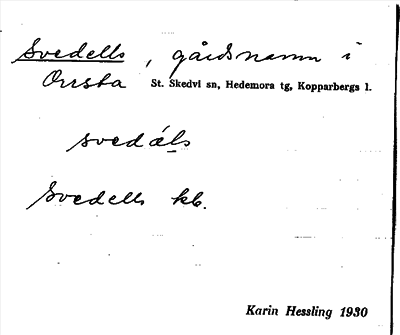 Svedells, gårdsnamn i
Orrsta St. Skedvi sn, Hedemora tg, Kopparbergs l.
svedáls
Svedells kb.
Karin Hessling 1930